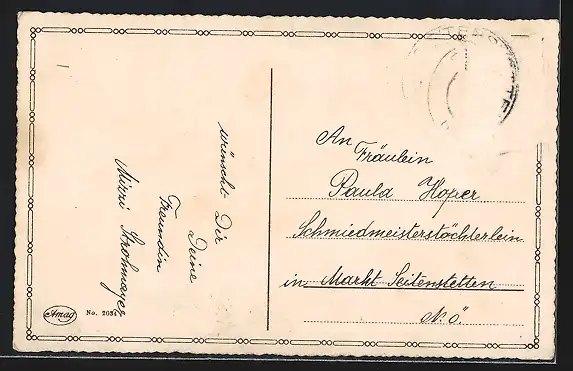 wünscht Dir
Deine
Freundin
Mizzi Strohmayer
An
Fräulein
Paula Hofer
Schmiedmeisterstöchterlein
in Markt Seitenstetten
N. Ö.
Amag
No. 2034